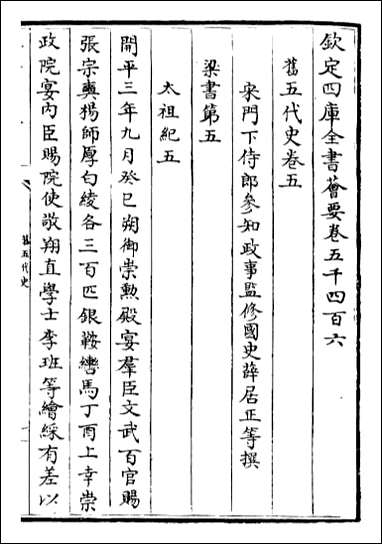 欽定四庫全書薈要卷五千四百六
舊五代史卷五
宋門下侍郎參知政事監修國史薛居正等撰
梁書第五
太祖紀五
開平三年九月癸巳朔御崇勲殿宴羣臣文武百官賜
張宗奭楊師厚白綾各三百匹銀鞍轡馬丁酉上幸崇
政院宴内臣賜院使敬翔直學士李珽等繒綵有差以
舊五代史